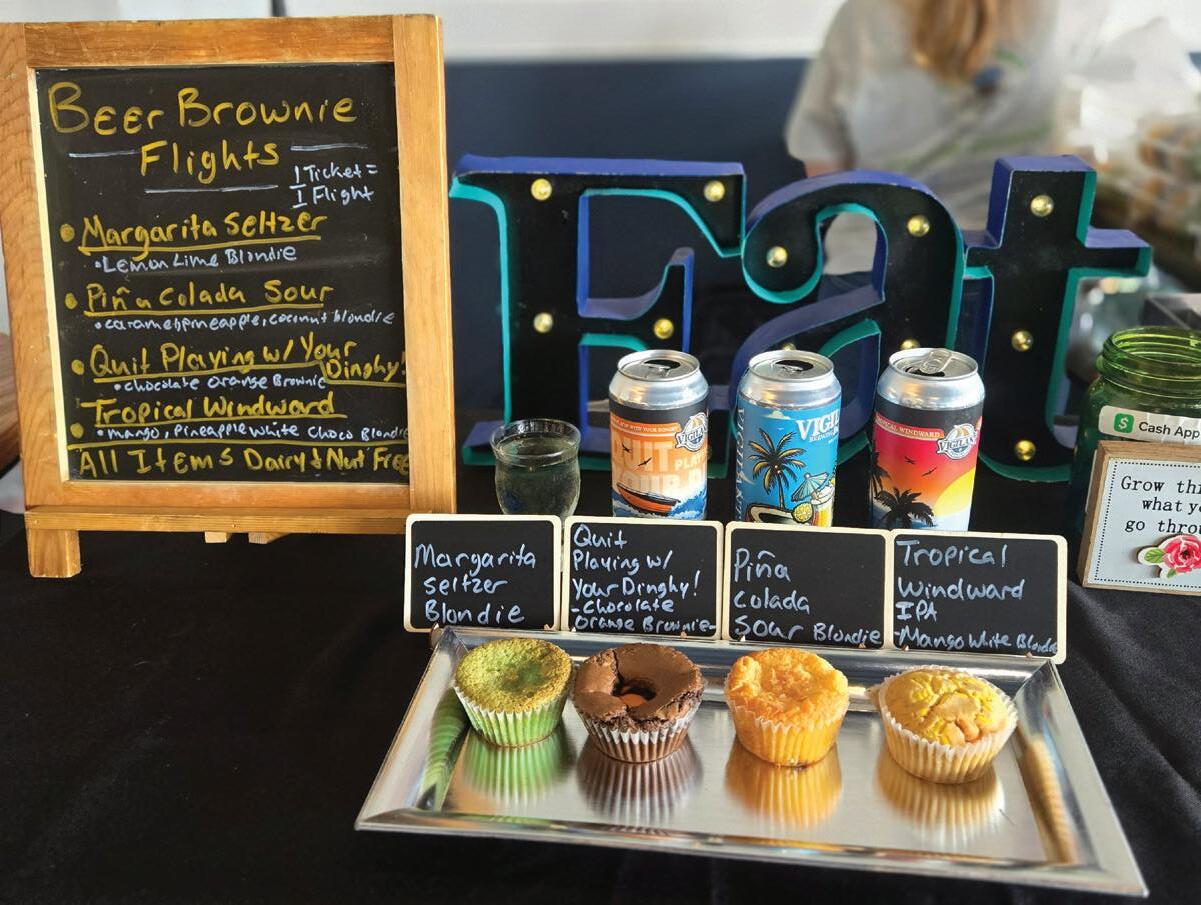 Beer Brownie
Flights
1 Ticket =
1 Flight
• Margarita Seltzer
• Lemon Lime Blondie
• Piña Colada Sour
• caramel, pineapple, coconut blondie
• Quit Playing w/ Your
Dinghy!
• chocolate orange Brownie
• Tropical Windward
• mango, pineapple white choco Blondie
All Items Dairy & Nut Free
Eat
QUIT
PLAY
YOUR
VIGILAN
VIGIL
TROPICAL WINDWARD
VIGILAN
$ Cash App
Grow th
what y
go thro
Margarita
Seltzer
Blondie
Quit
Playing w/
Your Dinghy!
-Chocolate
Orange Brownie
Piña
Colada
Sour Blondie
Tropical
Windward
IPA
-Mango White Blondie